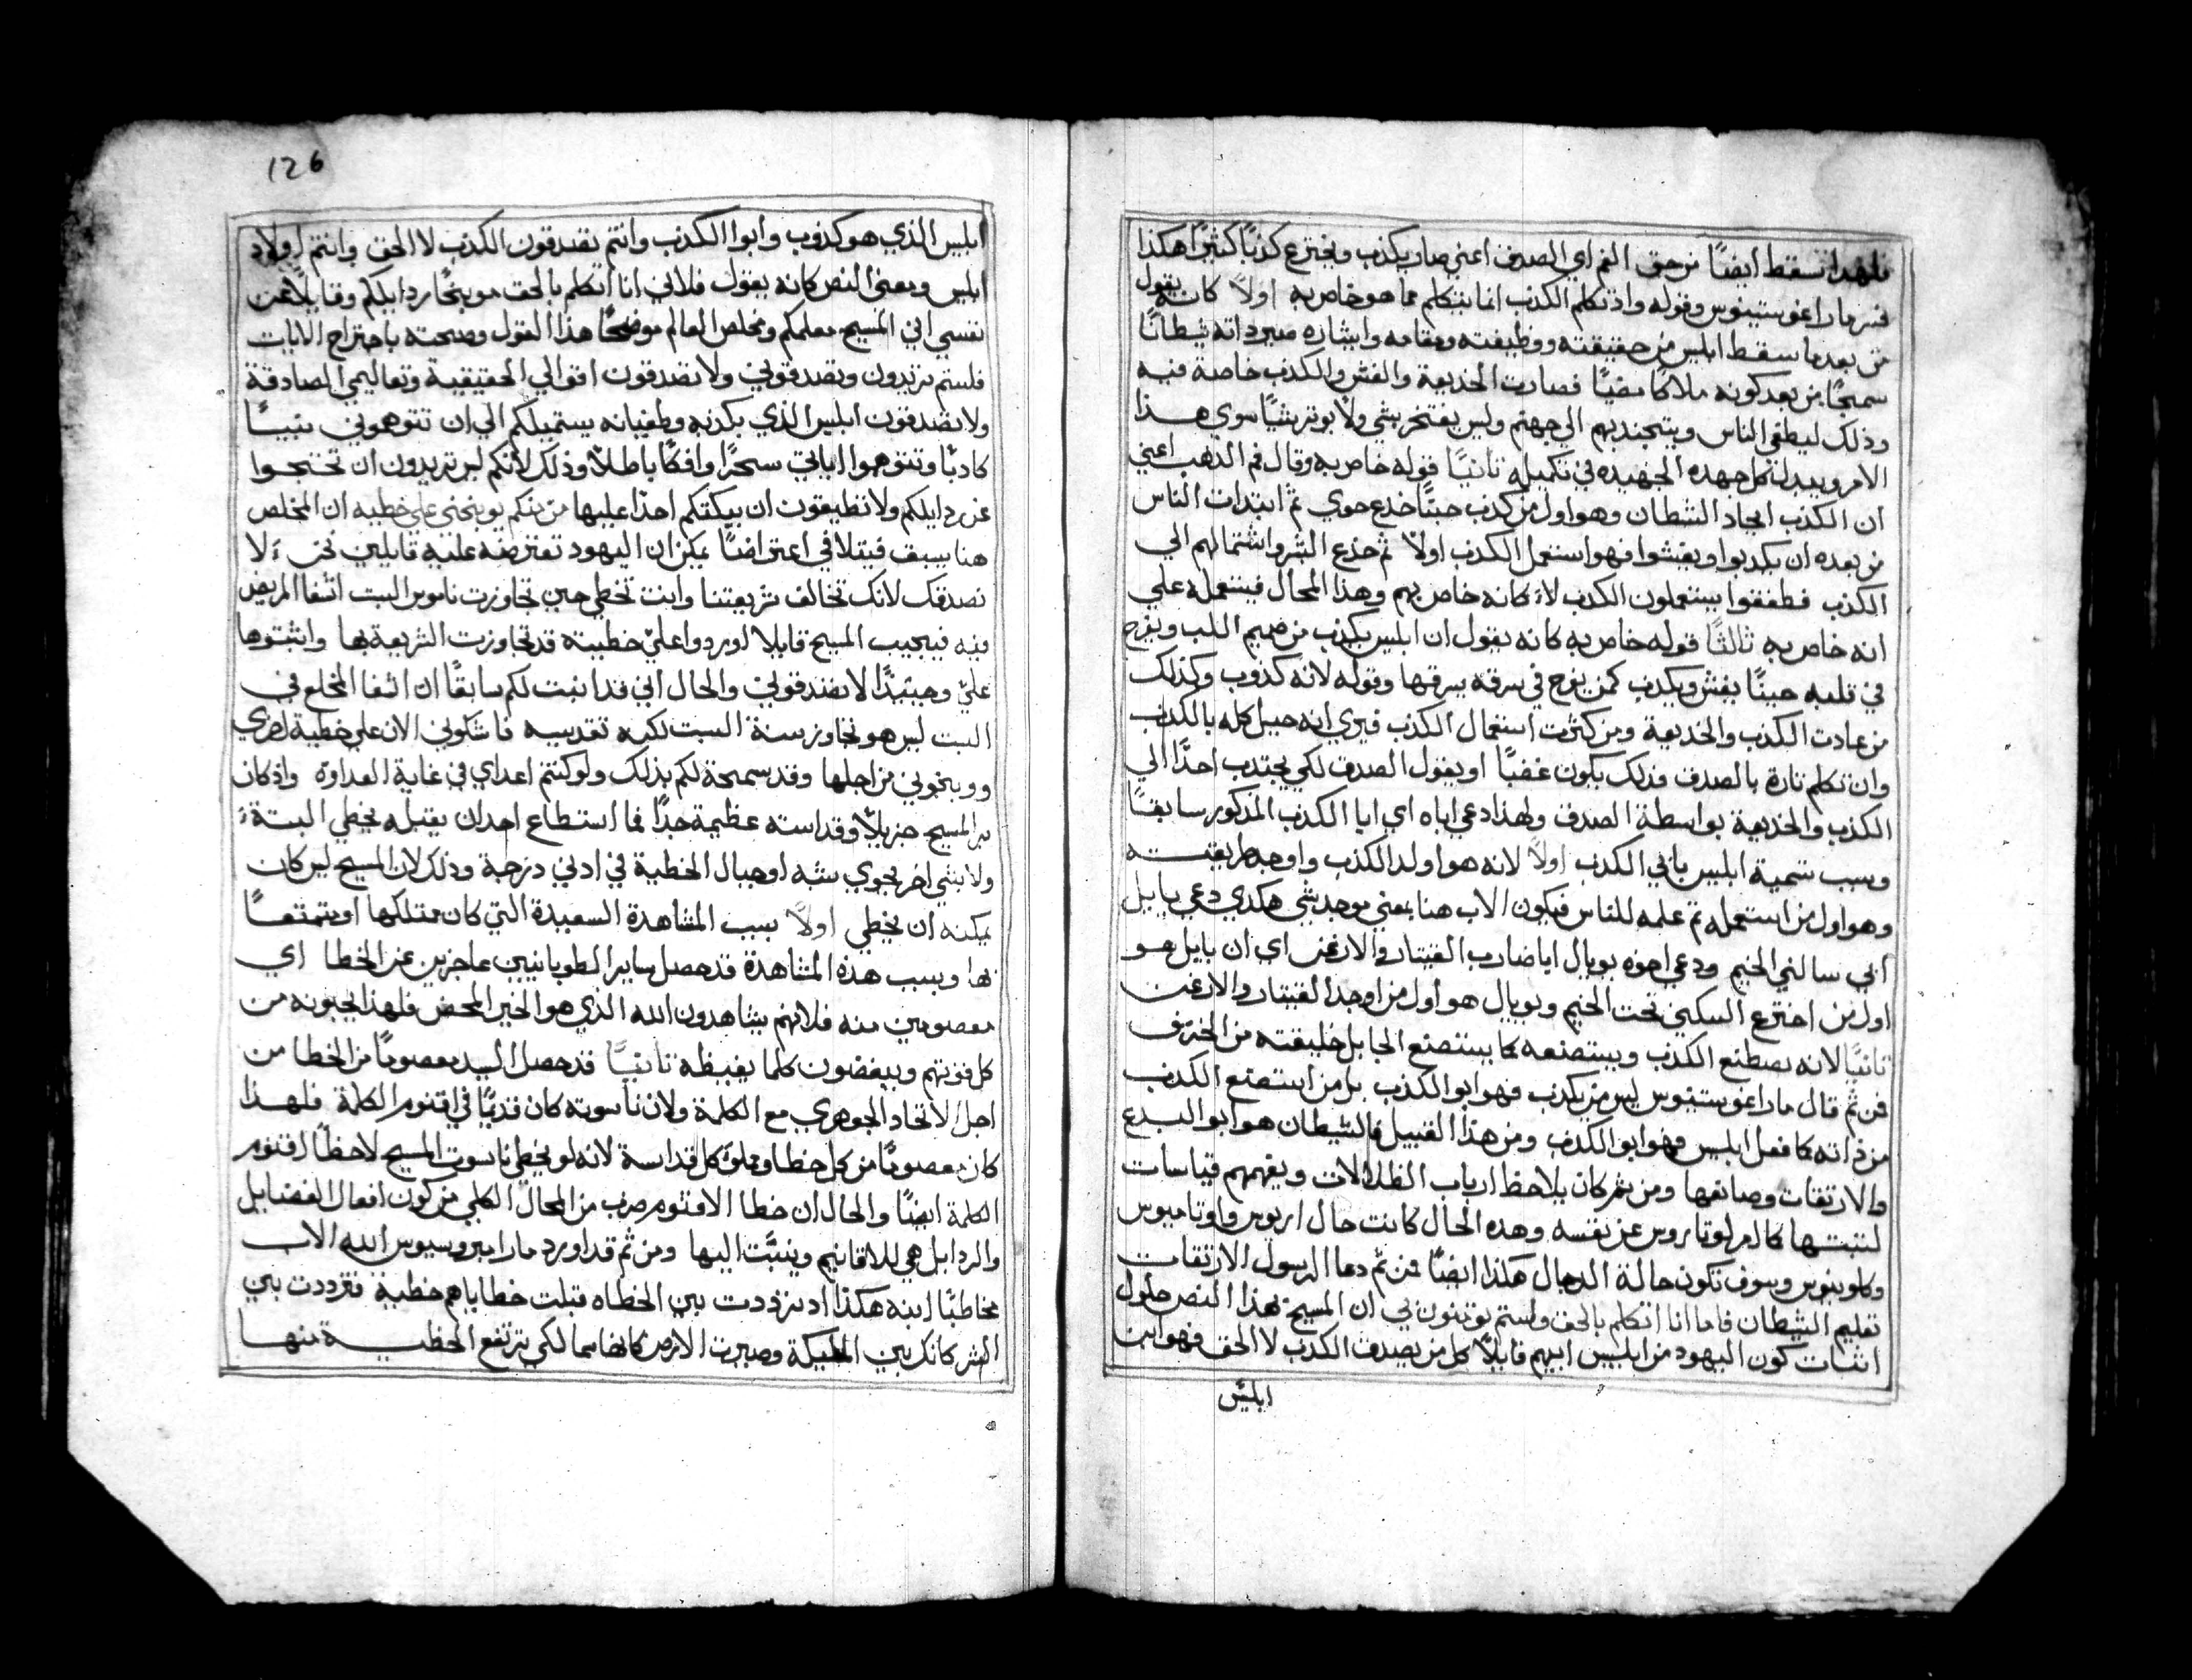 فلهذا سقط ايضًا من حق الفم اي الصدق اعني صار يكذب ويخترع كذبًا كثيرًا هكذا
فسر مار اغوستينوس وقوله واذ تكلم الكذب انما يتكلم مما هو خاص به اولاً كانه يقول
من بعد ما سقط ابليس من حقيقته ووظيفته ومقامه وايثاره صير ذاته شيطانًا
سمجًا من بعد كونه ملاكًا مضيًا فصارت الخديعة والغش والكذب خاصة فيه
وذلك ليطغي الناس ويجتدبهم الي جهتم وليس يفتخر بشي ولا يوتر شيًا سوي هذا
الامر ويبدل كل جهده الجهيده في تكميله تانيًا قوله خاص به وقال فم الذهب اعني
ان الكذب ايجاد الشطان وهو اول من كذب حيتًا خدع حوي ثم ابتدات الناس
من بعده ان يكدبوا ويغشوا فهو استعمل الكذب اولاً ثم خدع البشر واشتمالهم الي
الكذب فطفقوا يستعملون الكدب لا كانه خاص بهم وهذا المحال فيستعمله علي
انه خاص به ثالثًا قوله خاص به كانه يقول ان ابليس يكذب من صميم اللب ويفرح
في قلبه حينًا يغش ويكدب كمن يفرح في سرقه يسرقها وقوله لانه كذوب وكذلك
من عادت الكذب والخديعة ومن كثرت استعمال الكذب فيري انه جبل كله بالكذب
وان تكلم تارة بالصدق فذلك يكون غصبًا او يقول الصدق لكي يجتدب احدًا الي
الكذب والخديعة بواسطة الصدق ولهذا دعي اباه اي ابا الكذب المذكور سابقًا
وسبب تسمية ابليس بابي الكدب اولاً لانه هو اولد الكذب واوجد طريقته
وهو اول من استعمله ثم علمه للناس فيكون الاب هنا بمعني موجد شي هكدي دعي يابيل
ابي ساكني الخيم ودعي اخوه يوبال ابا ضارب القيتار والارغن اي ان يابيل هو
اول من اخترع السكني تحت الخيم ويوبال هو اول من اوجد القيتار والارغن
تانيًا لانه يصطنع الكدب ويستصنعه كما يستصنع الجابل خليقته من الخزف
فمن ثم قال مار اغوستينوس ليس من يكذب فهو ابو الكذب بل من استصنع الكدب
من ذاته كما فعل ابليس فهو ابو الكدب ومن هذا القبيل فالشيطان هو ابو البدع
والارتقات وصانعها ومن ثم كان يلاحظ ارباب الظلالات ويفهمهم قياسات
لتبتها كالمرلوتاروس عن نفسه وهده الحال كانت حال اريوس واوتاميوس
وكلوينوس وسوف تكون حالة الدجال هكذا ايضًا فمن ثم دعا الرسول الارتقات
تعليم الشيطان فاما انا اتكلم بالحق ولستم تومنون بي ان المسيح بهذا النص حاول
اثبات كون اليهود من ابليس ابيهم قايلاً كل من يصدق الكدب لا الحق فهو ابن
ابليس
126
ابليس الذي هو كذوب وابوا الكذب وانتم تصدقون الكذب لا الحق وانتم اولاد
ابليس ومعني النص كانه يقول فلاني انا اتكلم بالحق موبخًا رذايلكم وقايلاً عن
نفسي اني المسيح معلمكم ومخلص العالم موضحًا هذا القول وصحته باجتراح الايات
فلستم تريدون وتصدقوني ولا تصدقون اقوالي الحقيقية وتعاليمي الصادقة
ولا تصدقون ابليس الذي بكدبه وطغيانه يستميلكم الي ان تتوهموني نبيًا
كادبًا وتتوهموا اياتي سحرًا وافكًا باطلاً وذلك لانكم ليس تريدون ان تحتجوا
عن رذايلكم ولا تطيقون ان يبكتكم احدًا عليها من منكم يوبخني علي خطيه ان المخلص
هنا يسبق فيتلافي اعتراضًا يمكن ان اليهود تعترضه عليه قايلين نحن لا
نصدقك لانك تخالف شريعتنا وانت تخطي حين تجاوزت ناموس السبت اشفا المريض
فيه فيجيب المسيح قايلا اوردوا علي خطيبة قد تجاوزت الشريعة بها واثبتوها
علي وحينيدًا لا تصدقوني والحال اني قد اثبت لكم سابقًا ان اشفا المخلع في
السبت ليس هو تجاوز سنة السبت لكنه تقديسه فاشكوني الان علي خطية اخري
ووبخوني من اجلها وقد سمحة لكم بذلك ولو كنتم اعداي في غاية العداوة واذ كان
بر المسيح جزيلاً وقداسته عظيمة جدًا فما استطاع احد ان يقبله يخطي البتة
ولا بشي اخر يحوي شبه او خيال الخطية في ادني درجة وذلك لان المسيح ليس كان
يمكنه ان يخطي اولاً بسبب المشاهدة السعيدة التي كان ممتلكها او يتمتعًا
بها وبسبب هذه المشاهدة قد حصل ساير الطوبانيين عاجزين عن الخطا اي
معصومين منه فلانهم يشاهدون الله الذي هو الخير المحض فلهذا يحبونه من
كل قوتهم ويبغضون كلما يغيظه تانيًا قد حصل السيد معصومًا من الخطا من
اجل الاتحاد الجوهري مع الكلمة ولان ناسوته كان قديمًا في اقنوم الكلمة فلهذا
كان معصومًا من كل خطا ومملوّ كل قداسة لانه لو يخطي ناسوت المسيح لاحظًا اقنوم
الكلمة ايضًا والحال ان خطا الاقنوم ضرب من المحال الكلي من كون افعال الفضايل
والردايل هي للاقانيم وينسبت اليها ومن ثم قد اورد مار امبروسيوس الله الاب
مخاطبًا ابنه هكذا اد ترددت بين الخطاه قبلت خطاياهم خطية فترددت بين
البشر كانك بين المليكة وصيرت الارض كانها سما لكي ترتفع الخطية منها